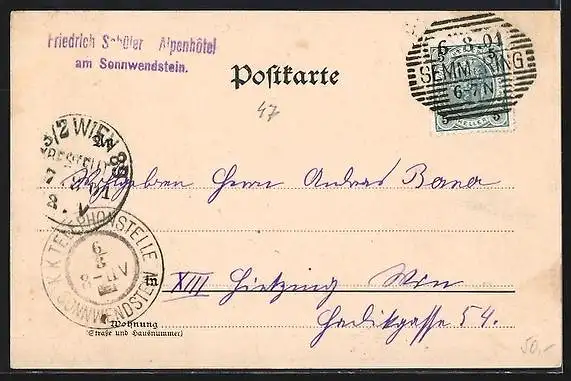 Friedrich Schüler Alpenhôtel
am Sonnwendstein.
Postkarte
47
6 8 01
SEMMERING
6-7N
5 HELLER 5
3/2 WIEN 89
7
K.K. TELEPHONSTELLE
6
8
8- V
SONNWENDSTEIN
Wohlgeboren Herrn Andras
in XIII Hietzing Wien
Hadikgasse 54.
Wohnung
(Straße und Hausnummer)
50.-